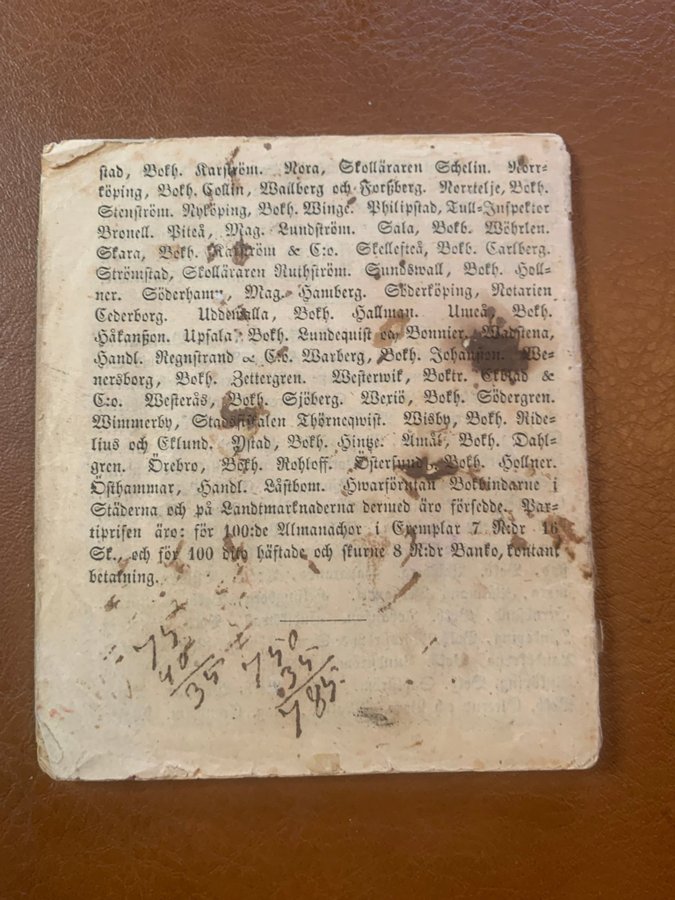 stad, Bokh. Karström. Nora, Skolläraren Schelin. Norr-
köping, Bokh. Collin, Wallberg och Forßberg. Norrtelje, Bokh.
Stenström. Nyköping, Bokh. Winge. Philipstad, Tull-Inspektor
Bronell. Piteå, Mag. Lundström. Sala, Bokb. Wöhrlen.
Skara, Bokh. Karström & C:o. Skellefteå, Bokb. Carlberg.
Strömstad, Skolläraren Ruthström. Sundswall, Bokh. Holl-
ner. Söderhamn, Mag. Hamberg. Söderköping, Notarien
Cederborg. Uddewalla, Bokh. Hallman. Umeå, Bokh.
Håkanßon. Upsala, Bokh. Lundequist och Bonnier. Wadstena,
Handl. Regnstrand & C:o. Warberg, Bokh. Johanßon. We-
nersborg, Bokh. Zettergren. Westerwik, Boktr. Ekblad &
C:o. Westerås, Bokh. Sjöberg. Wexiö, Bokh. Södergren.
Wimmerby, Stadsfiskalen Thörneqwist. Wisby, Bokh. Ride-
lius och Eklund. Ystad, Bokh. Hintze. Åmål, Bokh. Dahl-
gren. Örebro, Bokh. Rohloff. Östersund, Bokh. Hollner.
Östhammar, Handl. Låstbom. Hwarförutan Bokbindarne i
Städerna och på Landtmarknaderna dermed äro försedde. Par-
tiprisen äro: för 100:de Almanachor i Exemplar 7 R:dr 16
Sk., och för 100 dito häftade och skurne 8 R:dr Banko, kontant
betalning.
75 750
40 35
35 785